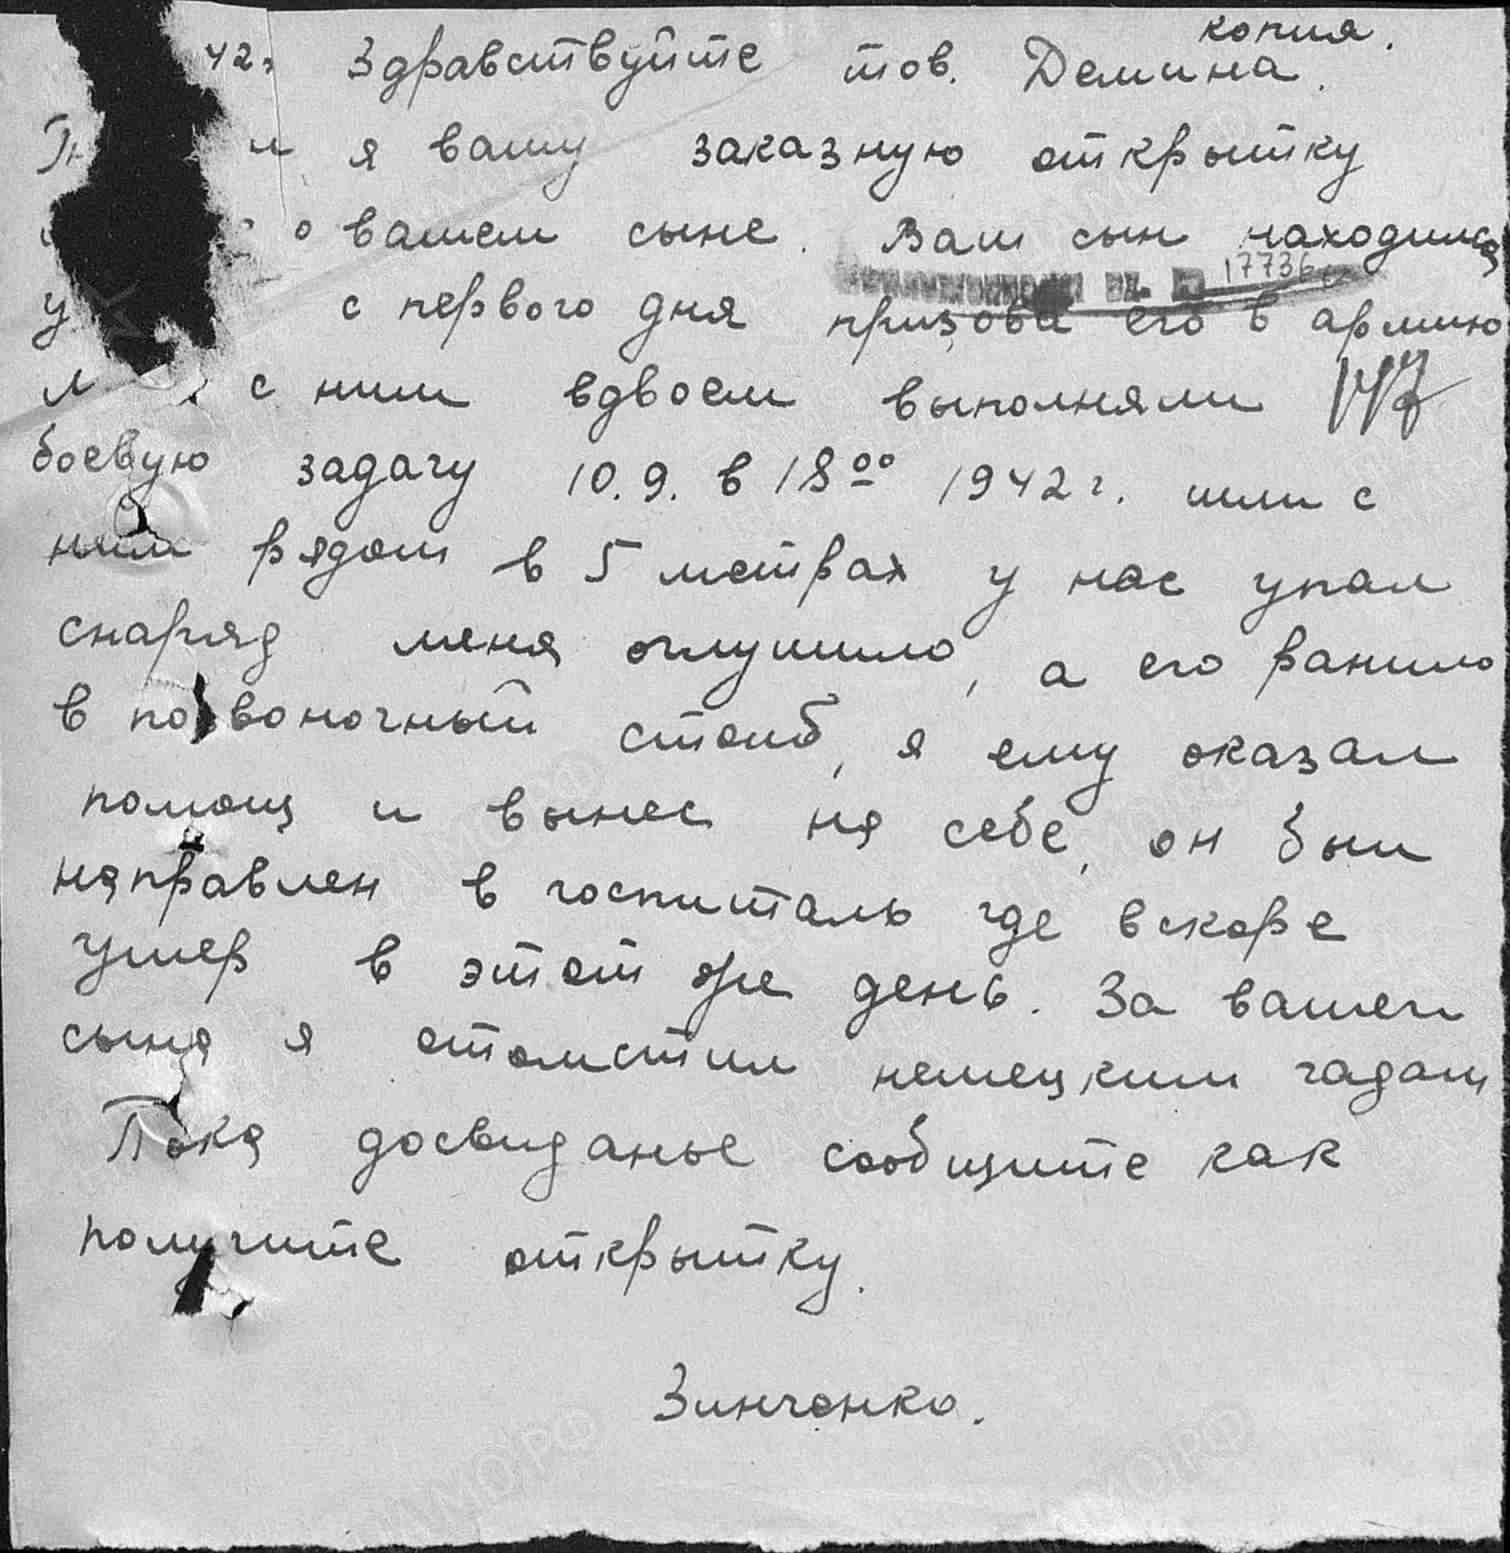 копия.
42г Здравствуйте тов. Демина.
я вашу заказную открытку
о вашем сыне. Ваш сын находился
17736
у с первого дня призова его в армию
с ним вдвоем выполняли
боевую задачу 10.9. в 18⁰⁰ 1942г. шли с
ним рядом в 5 метрах у нас упал
снаряд меня оглушило, а его ранило
в позвоночный столб, я ему оказал
помощ и вынес на себе, он был
направлен в госпиталь где вскоре
умер в этот же день. За вашего
сына я отомстил немецким гадам
Пока досвиданье сообщите как
получите открытку.
Зинченко.